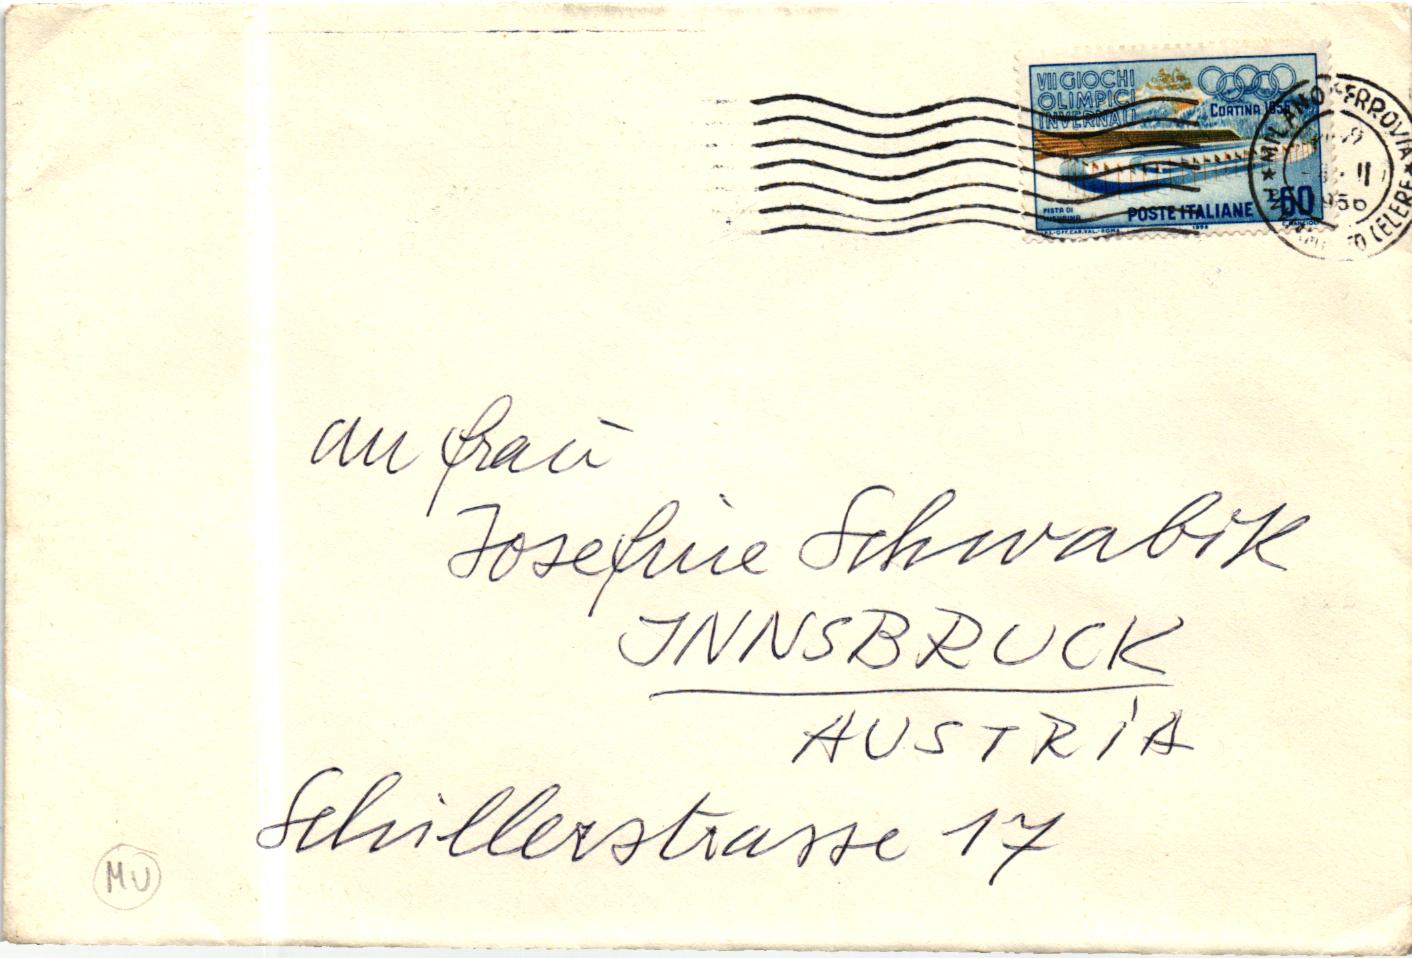 VII GIOCHI
OLIMPICI
INVERNALI
CORTINA 1956
PISTA DI
POSTE ITALIANE
60
MILANO FERROVIA
II
1956
CELERE
an Frau
Josefine Schwabik
INNSBRUCK
AUSTRIA
Schillerstrasse 17
MU